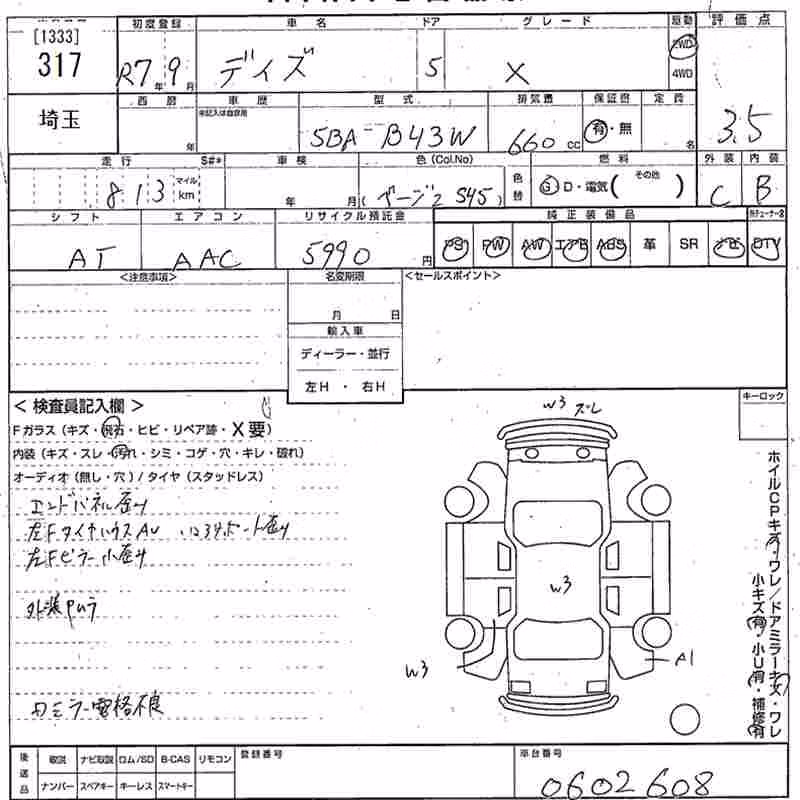 [1333]
317
埼玉
初度登録
R7年9月
車名
デイズ
ドア
5
グレード
X
駆動
2WD
4WD
評価点
3.5
西暦
年
車歴
未記入は自家用
型式
5BA-B43W
排気量
660cc
保証書
有・無
定員
名
走行
S#*
813
マイル
km
車検
年 月
色(Col.No)
(ベージ2 S45)
色替
燃料
G・D・電気( その他 )
外装
C
内装
B
シフト
AT
エアコン
AAC
リサイクル預託金
5990円
純正装備品
PS PW AW エアB ABS 革 SR ナビ DTV
<注意事項>
名変期限
月 日
輸入車
ディーラー・並行
左H・右H
<セールスポイント>
<検査員記入欄>
Fガラス(キズ・飛石・ヒビ・リペア跡・X要)
内装(キズ・スレ・汚れ・シミ・コゲ・穴・キレ・破れ)
オーディオ(無し・穴)/タイヤ(スタッドレス)
エンドパネル歪み
左FタイヤハウスAU
左Fピラー小歪み
外装Pムラ
カミラー電格不良
W3 ズレ
W3
W3
A1
キーロック
ホイルCPキズ・ワレ/ドアミラーキズ・ワレ
小キズ有・小U有・補修有
後送品
取説 ナビ取説 ロム/SD B-CAS リモコン
ナンバー スペアキー キーレス スマートキー
登録番号
車台番号
0602608